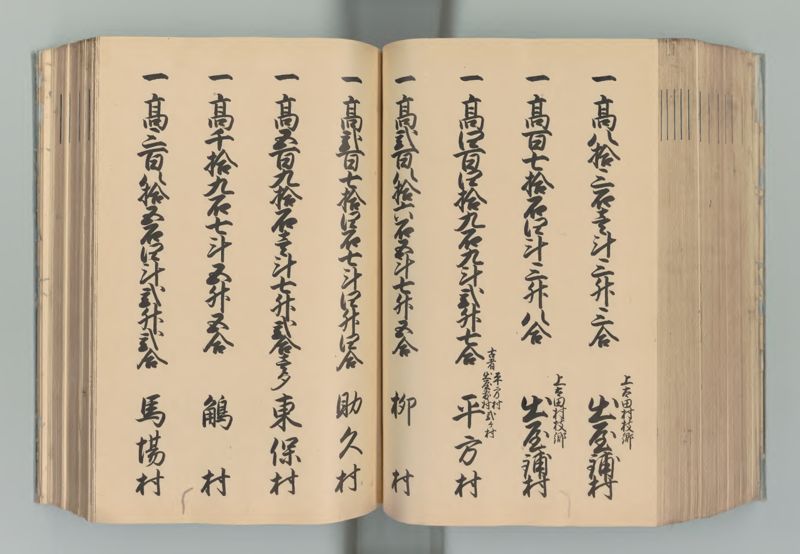 一 髙八拾三石壱斗三升三合 上太田村枝郷 出屋鋪村
一 髙百七拾石四斗三升八合 上太田村枝郷 出屋鋪村
一 髙四百四拾九石九斗弐升七合 古者 平方村 出屋鋪村 弐ヶ村 平方村
一 髙弐百八拾六石五斗七升五合 柳村
一 髙弐百七拾四石七斗四升四合 助久村
一 髙五百九拾石壱斗七升弐合壱夕 東保村
一 髙千拾九石七斗五升五合 鵤村
一 髙三百八拾五石四斗弐升弐合 馬場村